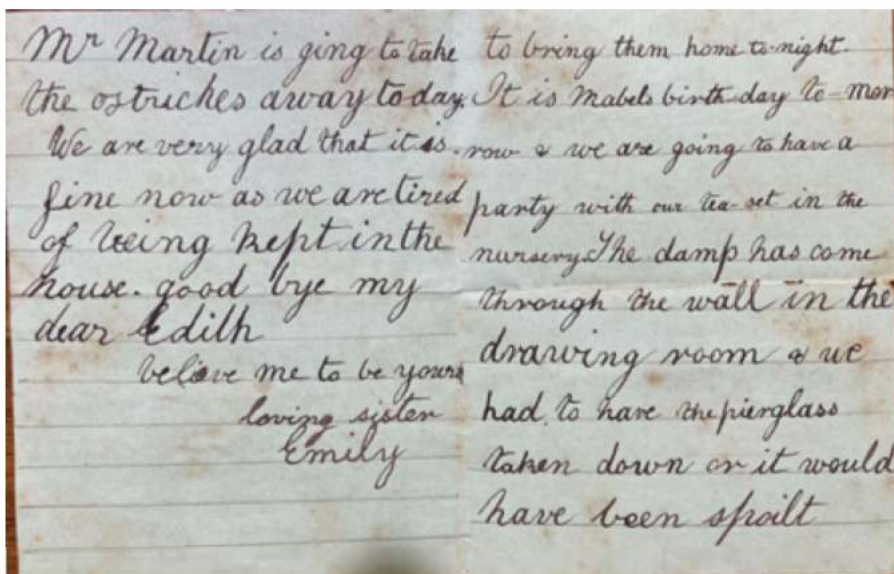 Mr Martin is ging to take
the ostriches away today.
We are very glad that it is
fine now as we are tired
of being kept in the
house. good bye my
dear Edith
beleive me to be yours
loving sister
Emily
to bring them home to-night.
It is Mabels birth-day to-mor
row & we are going to have a
party with our tea-set in the
nursery. The damp has come
through the wall in the
drawing room & we
had to have the pierglass
taken down or it would
have been spoilt